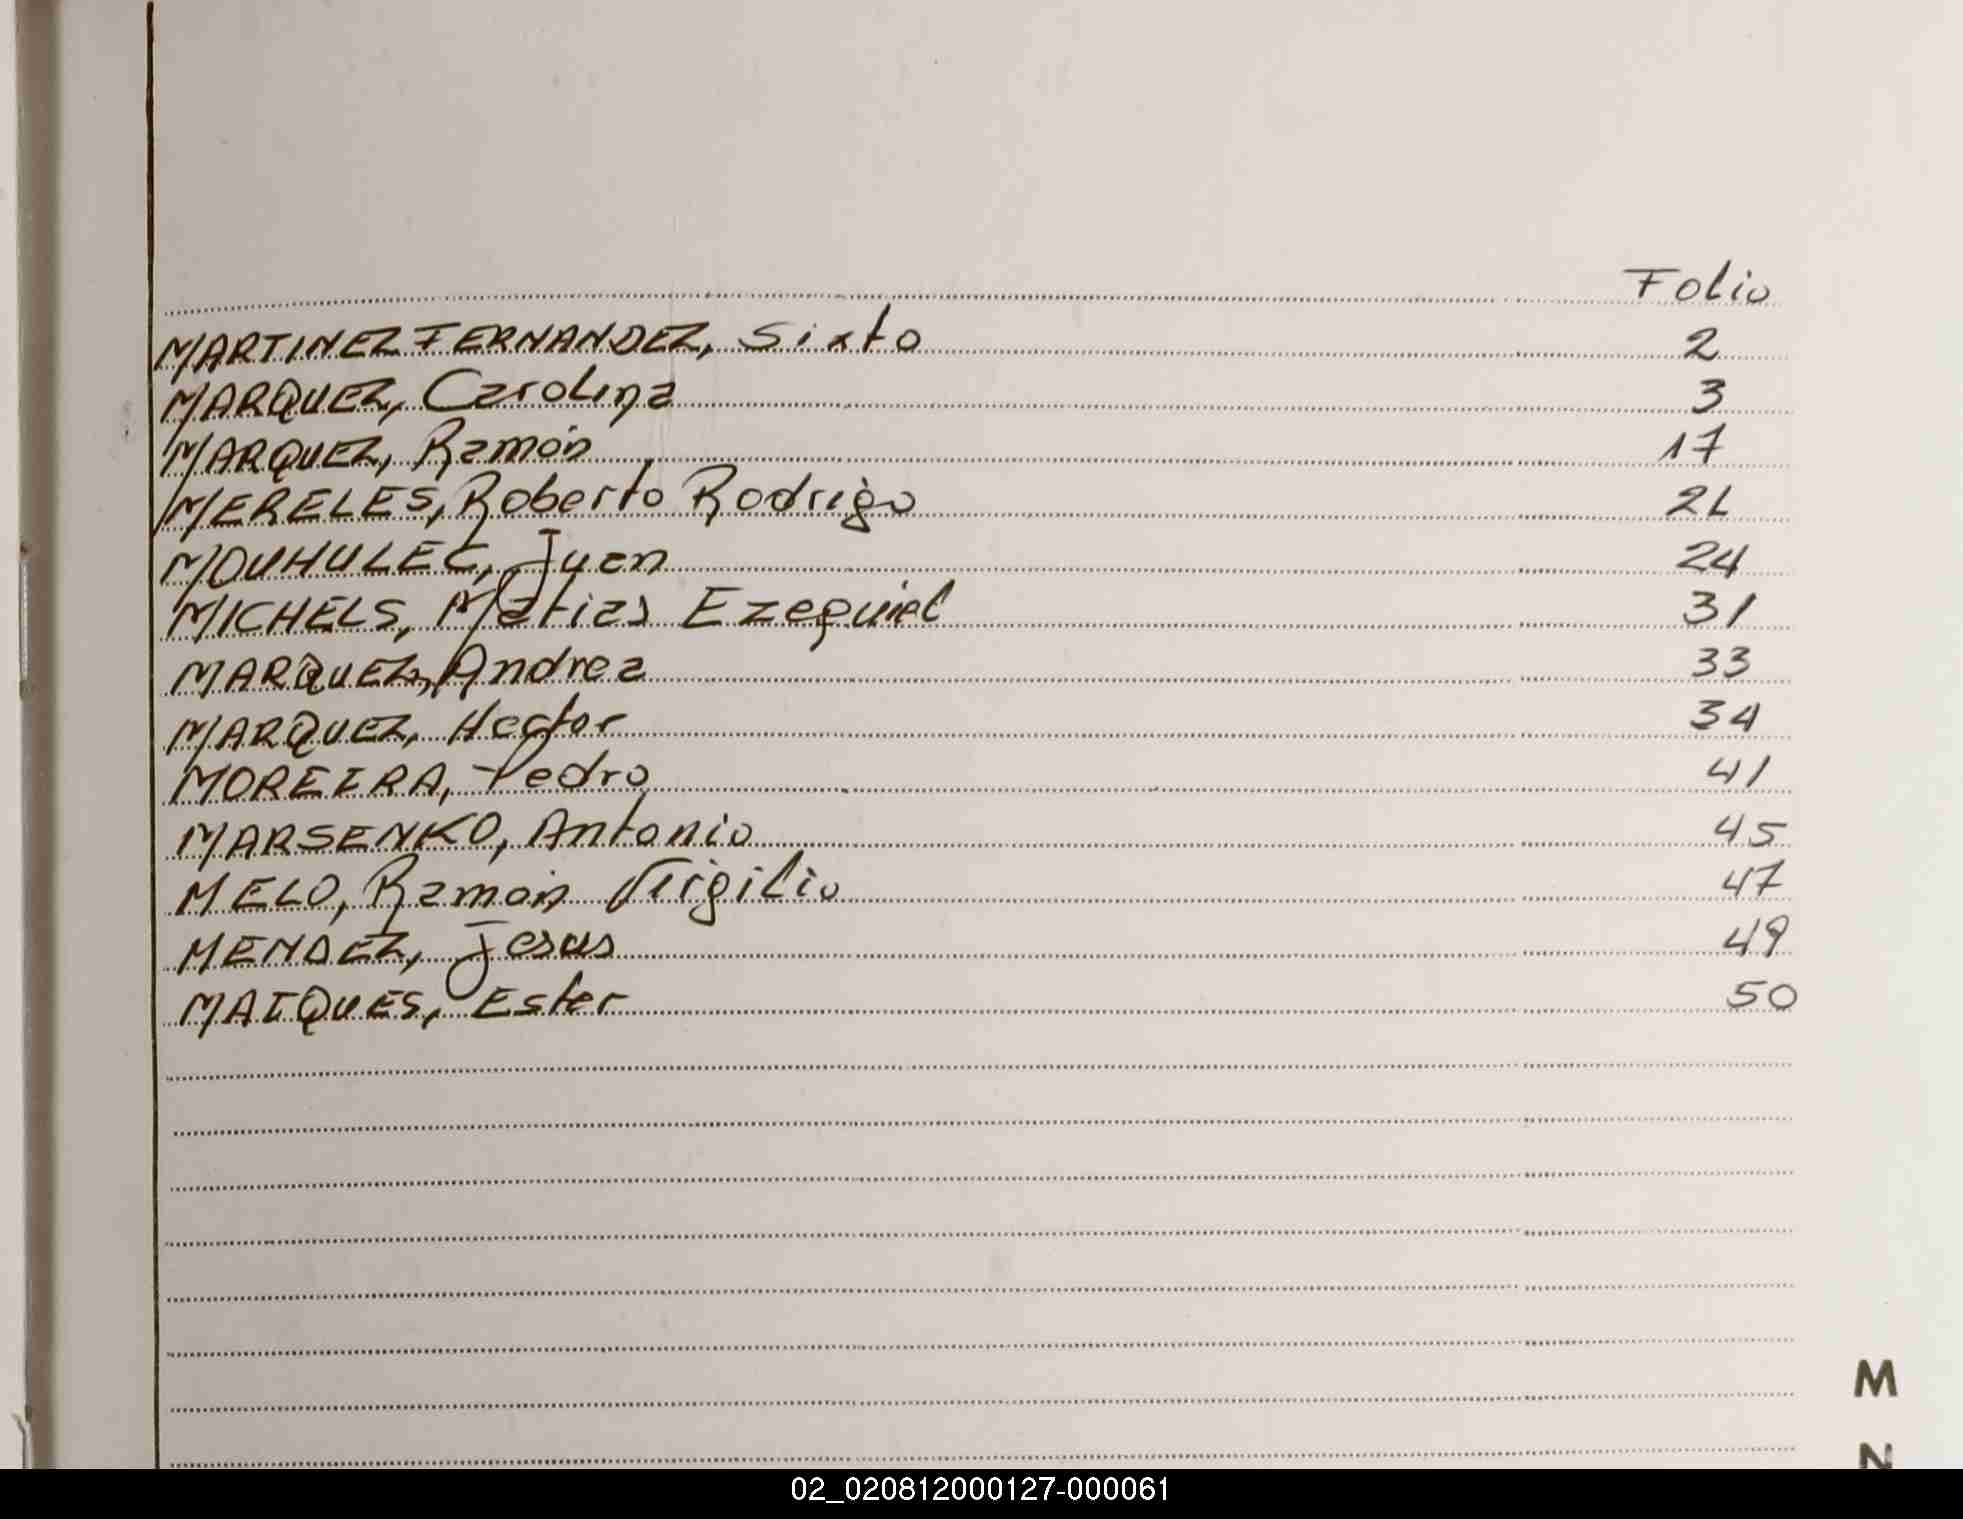 Folio
MARTINEZ FERNANDEZ, Sixto 2
MARQUEZ, Carolina 3
MARQUEZ, Ramón 17
MERELES, Roberto Rodrigo 21
MOUHULEC, Juan 24
MICHELS, Matias Ezequiel 31
MARQUEZ, Andrea 33
MARQUEZ, Hector 34
MOREIRA, Pedro 41
MARSENKO, Antonio 45
MELO, Ramón Virgilio 47
MENDEZ, Jesus 49
MAIQUES, Ester 50
M
N
02_020812000127-000061